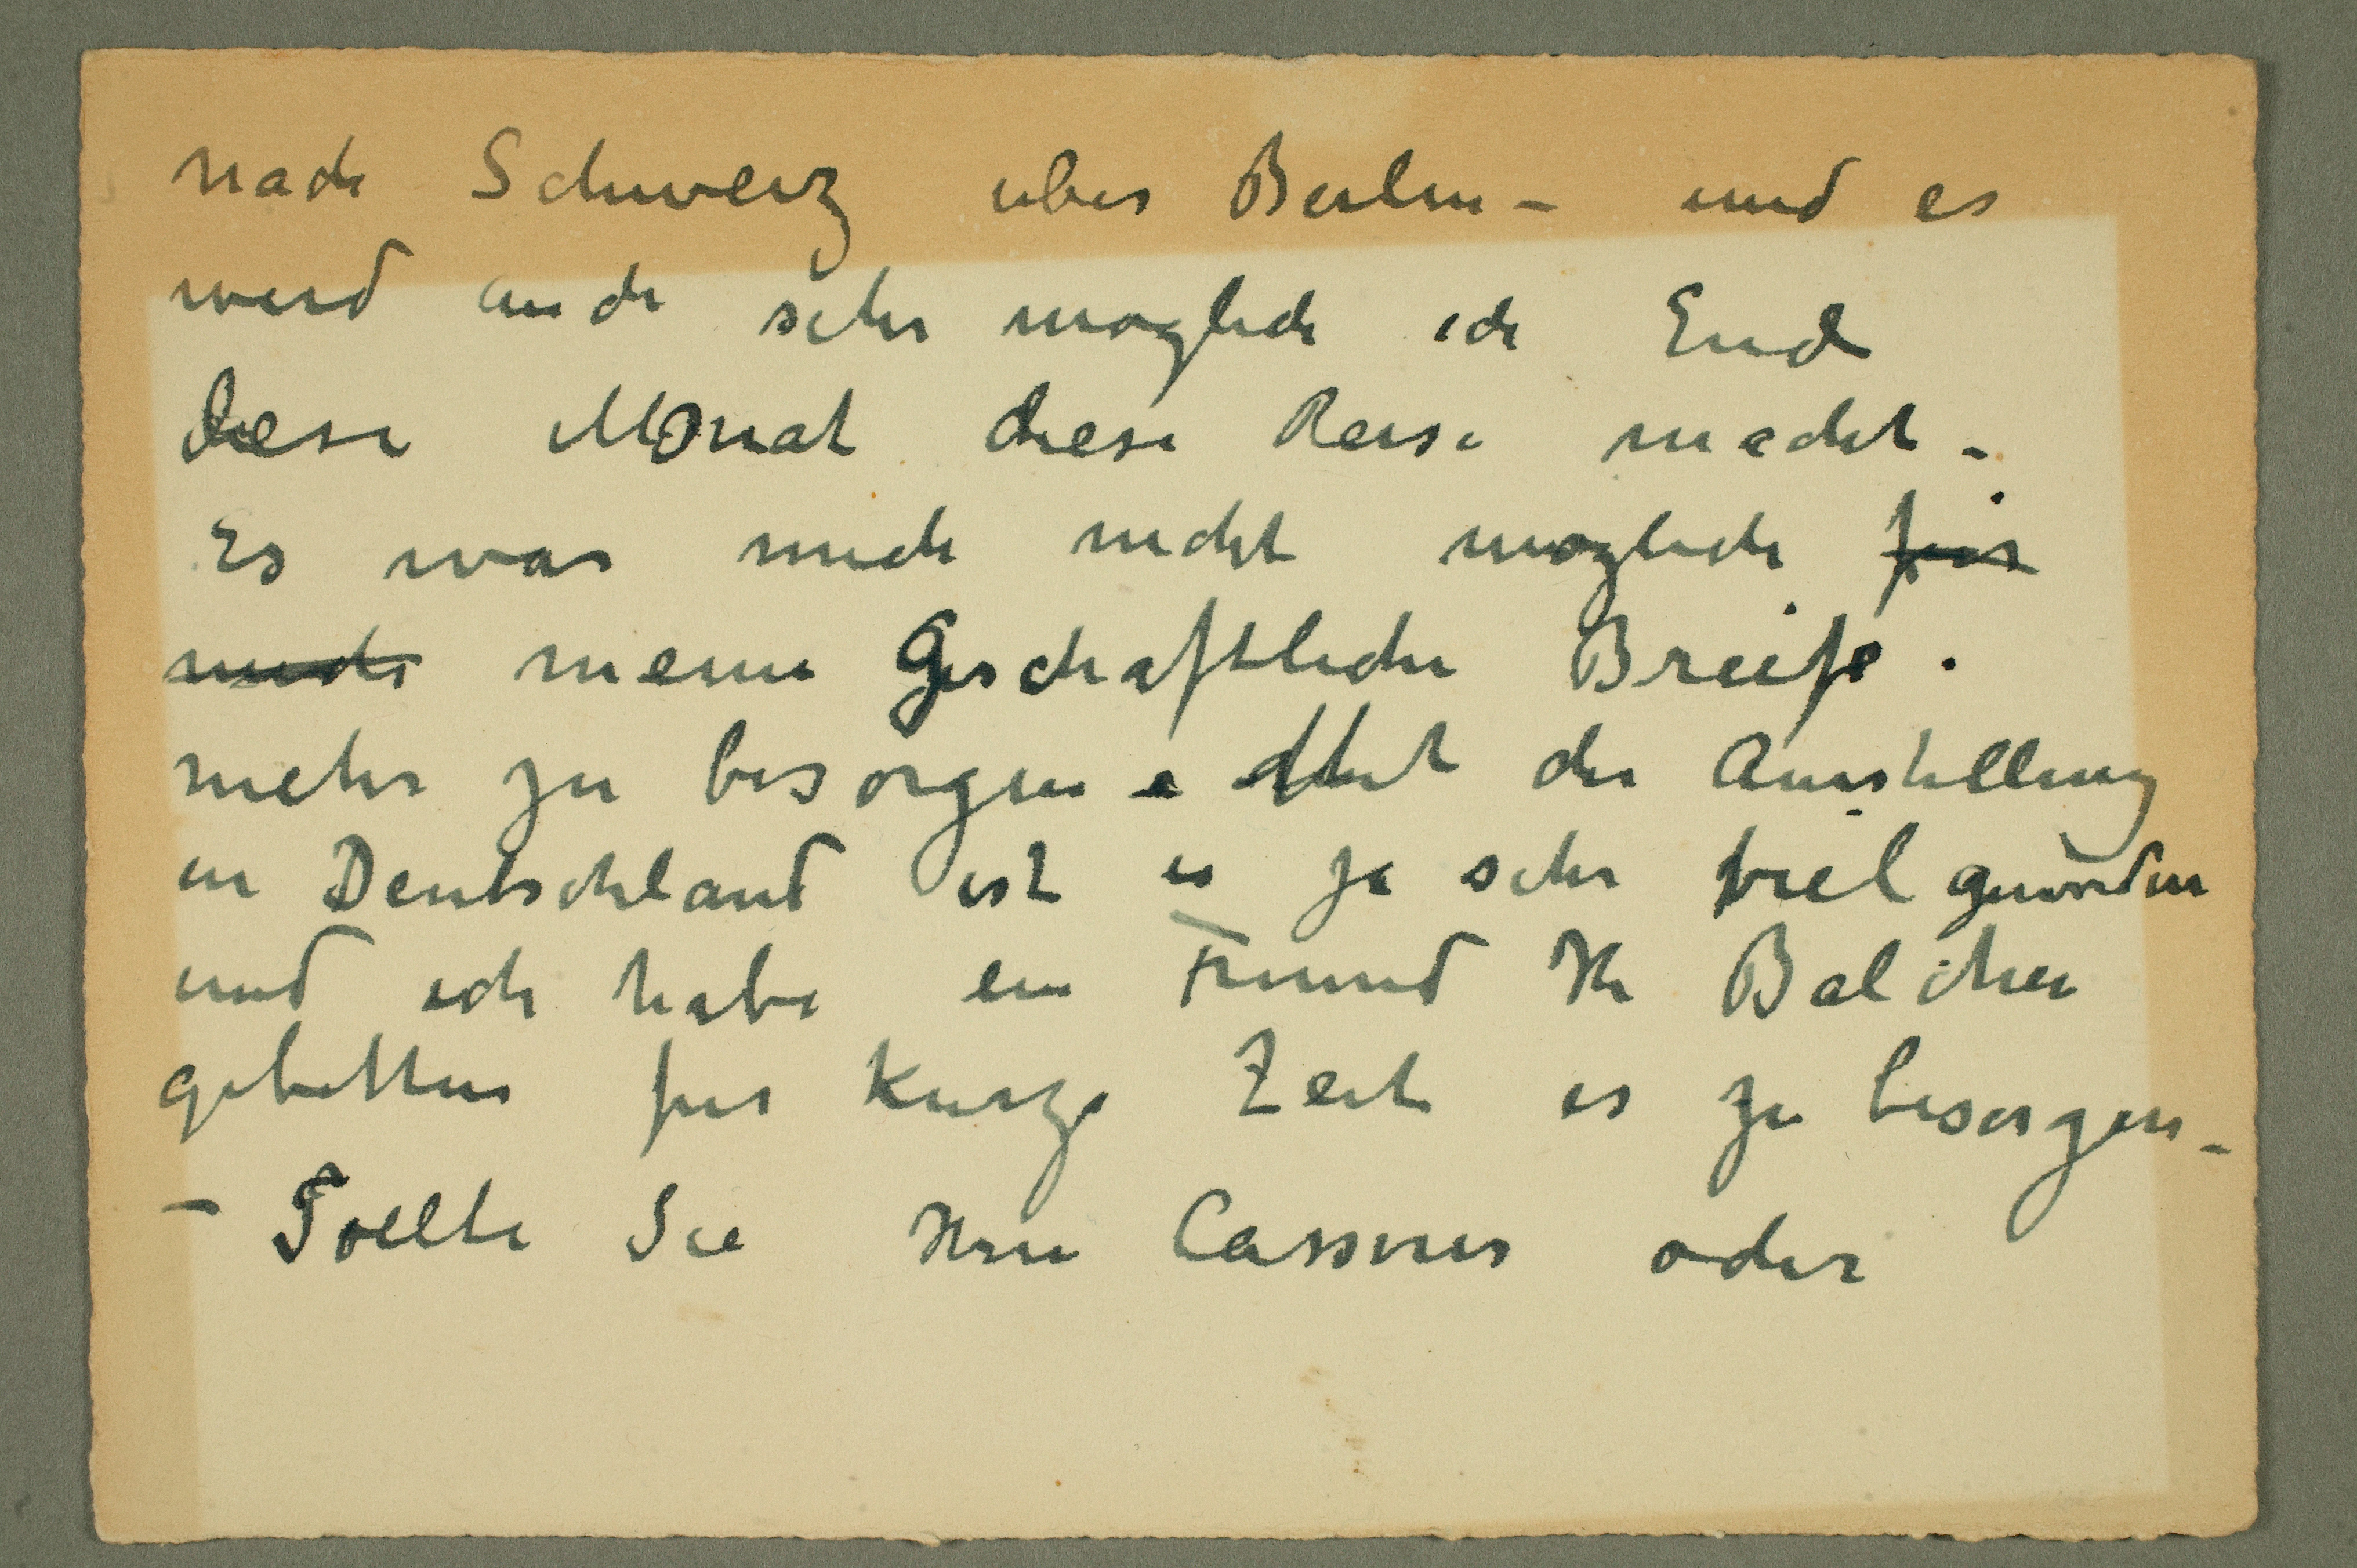 nach Schweiz uber Berlin – und es
werd auch sehr moglich ich Ende
diese Monat diese Reise macht –
Es war mich nicht moglich für
mich meine Geschaftliche Breife .
mehr zu besorgen. Mit der Ausstellung
in Deutschland ist es ja sehr viel geworden
und ich habe ein Freund Hr Balcher
gebitten fur kurze Zeit es zu besorgen –
– Sollte Sie Herrn Cassirer oder